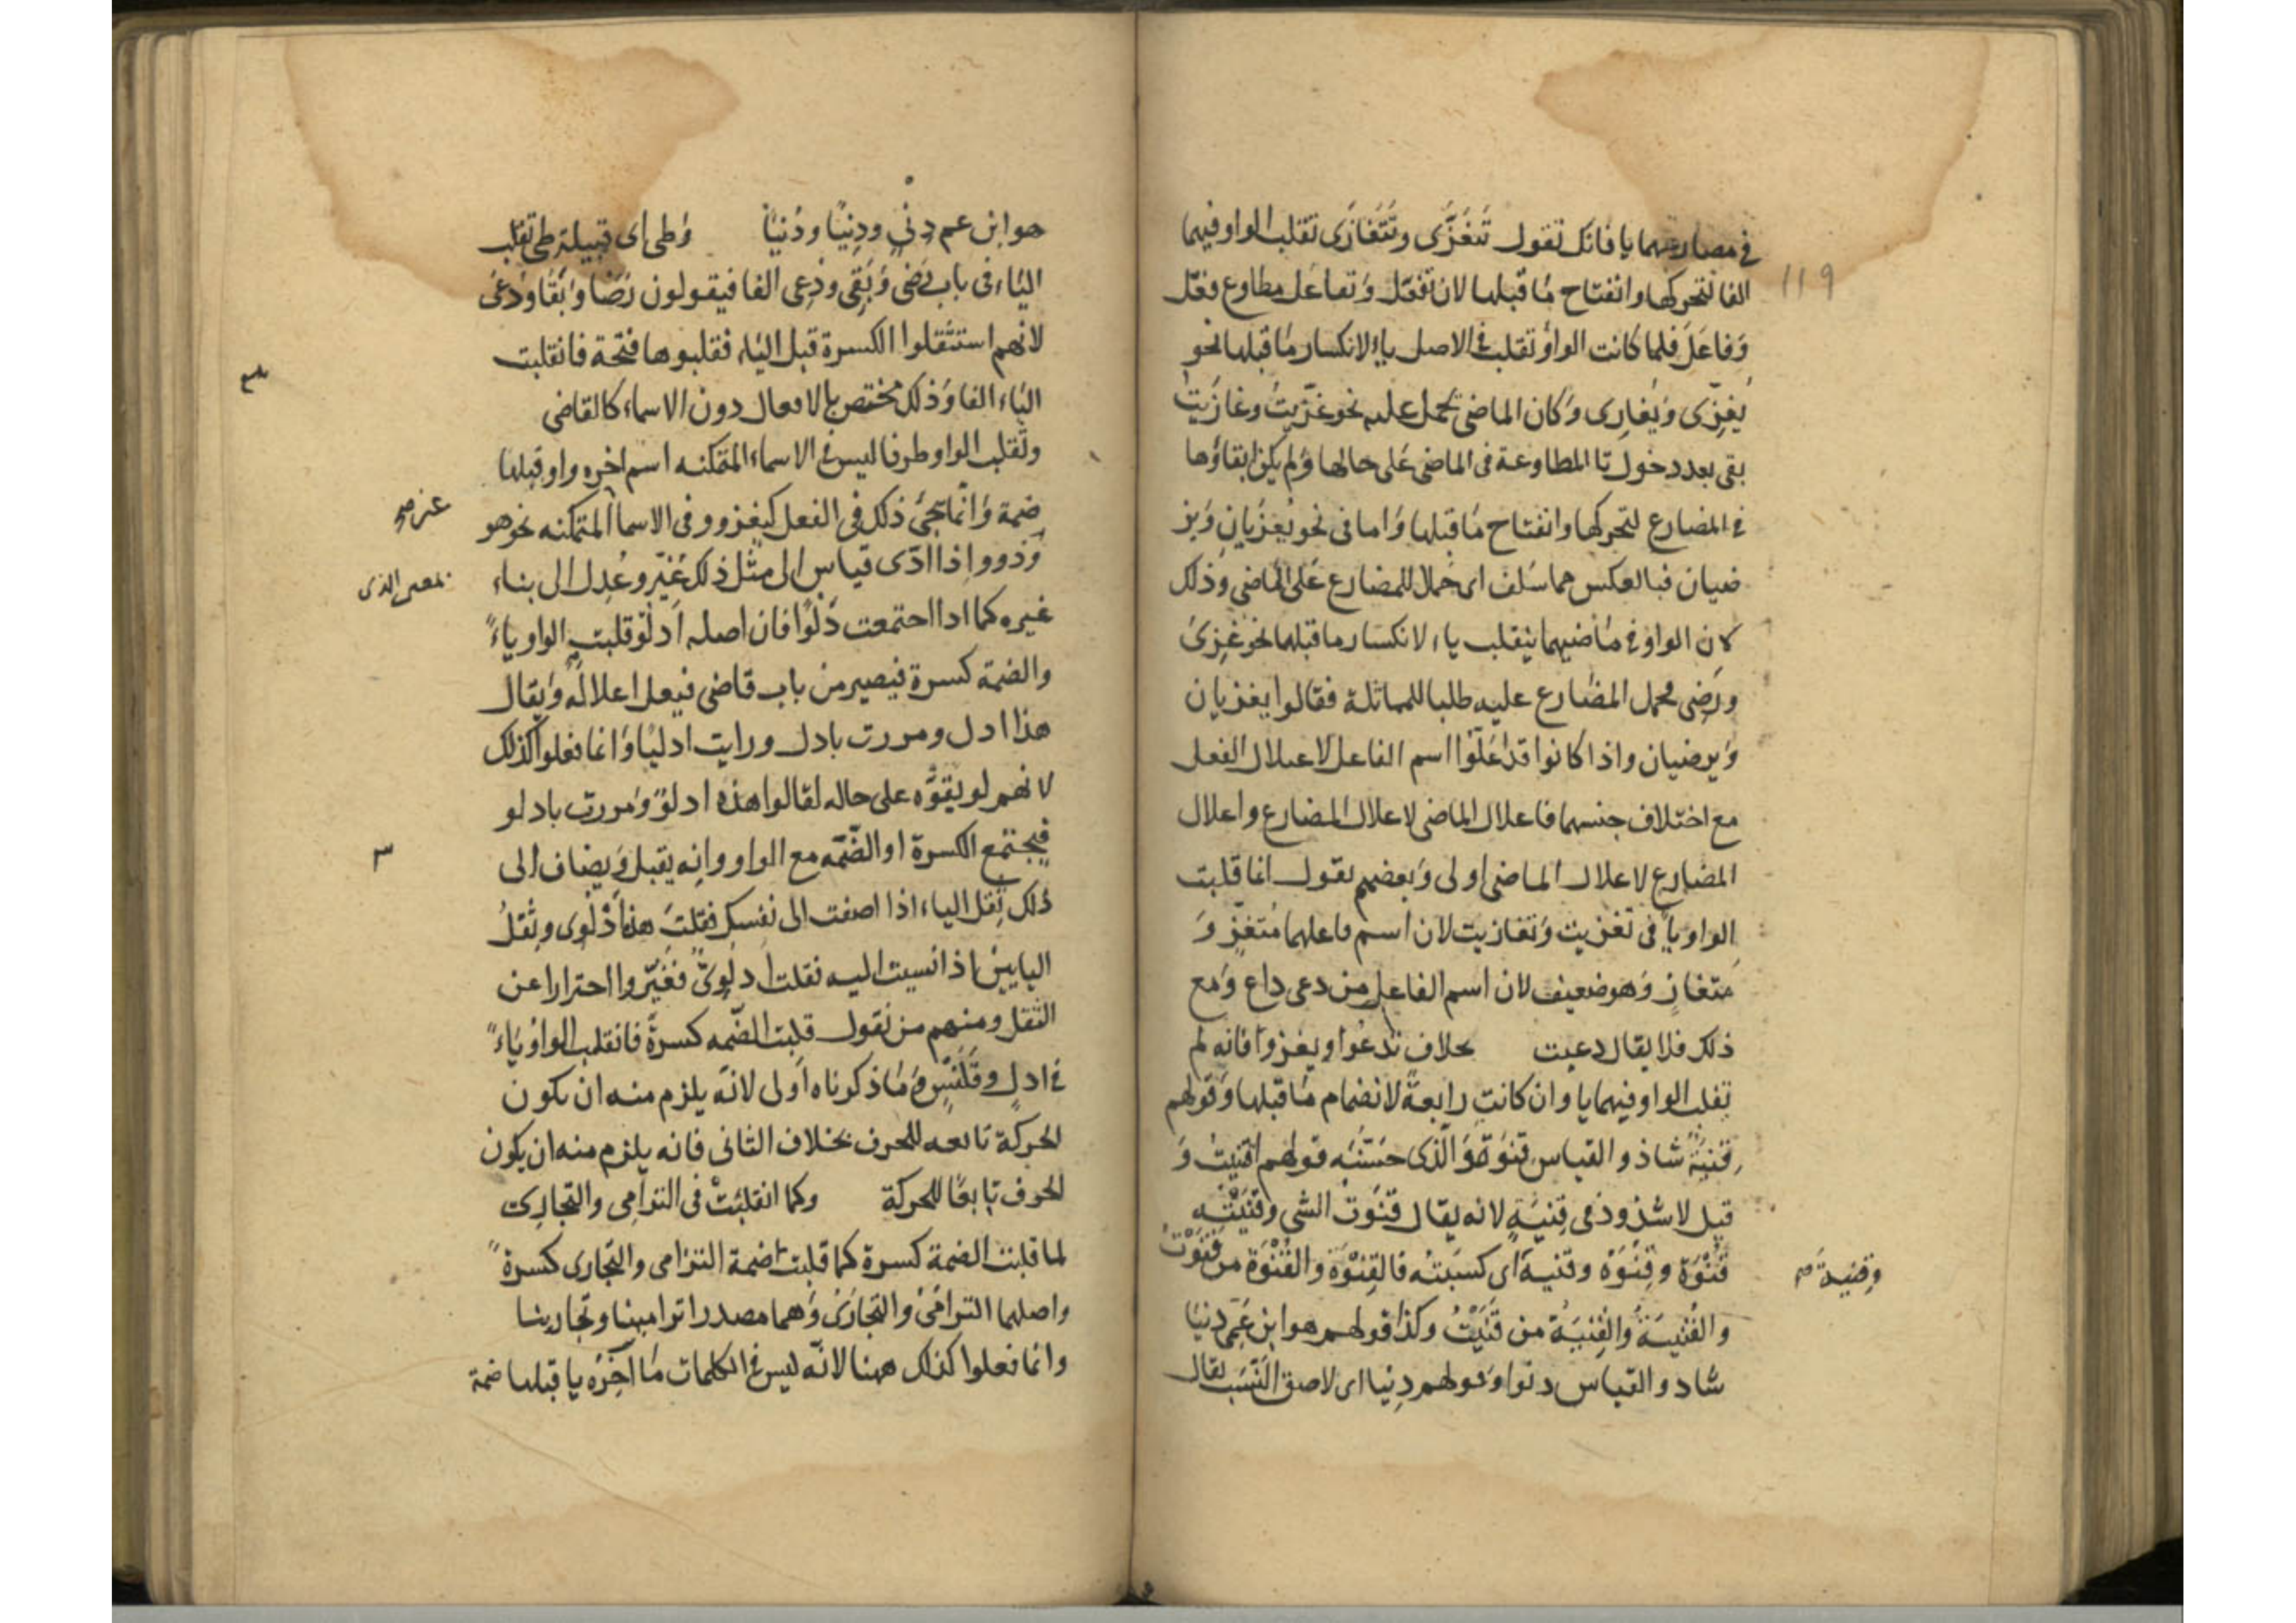 في مصارعهما يا فانك تقول تَتَغَزَّى وتَتَغَازَى تقلب الواو فيهما
الفا لتحركها وانفتاح ما قبلها لان تفعّل وتفاعل مطاوع فعّل
وَفاعَلَ فلما كانت الواو تقلب في الاصل ياء لانكسار ما قبلها نحو
يُغزّى ويُغازى وكان الماضى يحمل عليه نحو غزّيتُ وغازيتُ
بقى بعد دخول تا المطاوعة فى الماضى على حالها ولم يكن ابقاؤها
في المضارع لتحركها وانفتاح ما قبلها واما فى نحو يُغزَيان وَير
ضيان فبالعكس مما سلف اى حملا للمضارع على الماضى وذلك
لان الواو في ماضيهما ينقلب ياء لانكسار ما قبلها نحو غُزِىَ
ورَضى محمل المضارع عليه طلبا للمماثلة فقالوا يغزيان
ويرضيان واذا كانوا قد اعلّوا اسم الفاعل لاعلال الفعل
مع اختلاف جنسهما فاعلال الماضى لاعلال المضارع واعلال
المضارع لاعلال الماضى اولى وبعضهم يقول انما قلبت
الواو يا فى تغزيت وتغازيت لان اسم فاعلهما مُتَغزٍّ وَ
متغازٍ وهو ضعيف لان اسم الفاعل من دعى داع ومع
ذلك فلا يقال دعيت بخلاف تدعوا ويغزوا فانه لم
تقلب الواو فيهما يا وان كانت رابعةً لانضمام ما قبلها وقولهم
قِنيَةٌ شاذ والقياس قنوة والذى حسّنه قولهم اقنيت وَ
قيل لا شذوذ فى قِنيَةٍ لانه يقال قَنَوتُ الشى وقَنَيْتُه
قُنْوَةً وقِنْوَةً وقنية اى كسبته فالقِنْوَة والقُنْوَة من قَنَوْتُ
وقنيةً صح
والقُنْيَةُ والقِنْيَةُ من قَنَيْتُ وكذا قولهم هو ابن عَمِّى دِنيا
شاد والقياس دنوا وقولهم دِنيا اى لاصق النَّسَب يقال
١١٩
هو ابن عم دِنْىٍ ودِنيًا ودُنيًا وَطى اى قبيلة طى تقلب
الياء فى باب رَضى وَبَقى ودُعى الفا فيقولون رَضَا وَبَقَا وَدُعَى
لانهم استثقلوا الكسرة قبل الياء فقلبوها فتحة فانقلبت
الياء الفا وَذلك مختص بالافعال دون الاسماء كالقاضى
وتُقلب الواو طرفا ليس في الاسماء المتمكنه اسم اخره واو قبلها
ضمة وَانّما تجئ ذلك فى الفعل كيغزو وفى الاسما المتمكنه نحو هو
غير صح
وَذو واذا ادّى قياس الى مثل ذلك غُيّر وعُدِل الى بناء
بمعنى الذى
غيره كما اذا اجتمعت دَلْوًا فان اصله اَدلُوٌ قلبت الواو ياءً
والضمة كسرة فيصير من باب قاضى فيعل اعلاله ويقال
هذا ادل ومررت بادل ورايت ادليًا وانما فعلوا كذلك
لانهم لو بقوّه على حاله لقالوا هذه ادلوٌ ومررت بادلو
فيجتمع الكسرة او الضّمّه مع الواو وانه يقبل ويضاف الى
ذلك ثقل الياء اذا اضفت الى نفسك فقلت هذا اَدْلُوِى وثِقَلُ
اليايين اذا نسبت اليه فقلت ادلوىّ فغيّروا احترازا عن
الثقل ومنهم من يقول قلبت الضّمّه كسرةً فانقلب الواو ياءً
في ادلٍ وقَلَنسٍ وما ذكرناه اولى لانّه يلزم منه ان يكون
الحركة تابعه للحرف بخلاف الثانى فانه يلزم منه ان يكون
الحرف تابعًا للحركة وكما انقلبتْ فى الترامِى والتجارِى
لما قلبت الضمة كسرة كما قلبت ضمة الترامى والتجارى كسرةً
واصلهما الترامُىُ والتجارُىُ وَهما مصدرا ترامينا وتجارينا
وانما فعلوا كذلك ههنا لانّه ليس في الكلمات ما آخِرُه يا قبلها ضمة